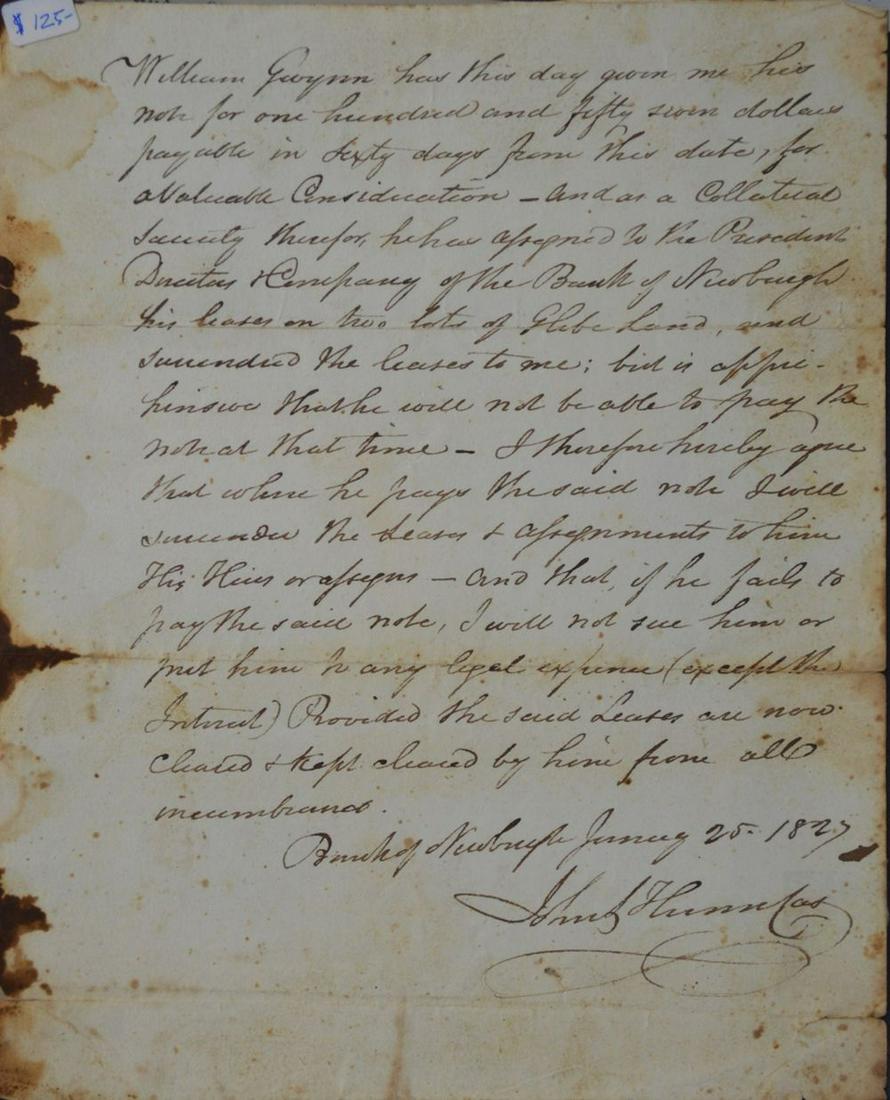 $125-
William Gwynn has this day given me his
note for one hundred and fifty seven dollars
payable in sixty days from this date, for
a Valuable Consideration – and as a Collateral
Security therefor, he has assigned to the President
Directors & Company of the Bank of Newburgh
his leases on two lots of Glebe Land, and
surrendered the leases to me; but is appre-
hensive that he will not be able to pay the
note at that time – I therefore hereby agree
that when he pays the said note I will
surrender the Leases & assignments to him
His Heirs or assigns – and that, if he fails to
pay the said note, I will not sue him or
put him to any legal expence (except the
Interest) Provided the said Leases are now
cleared & kept cleared by him from all
incumbrances.
Bank of Newburgh January 25. 1827
John Hunn Cas